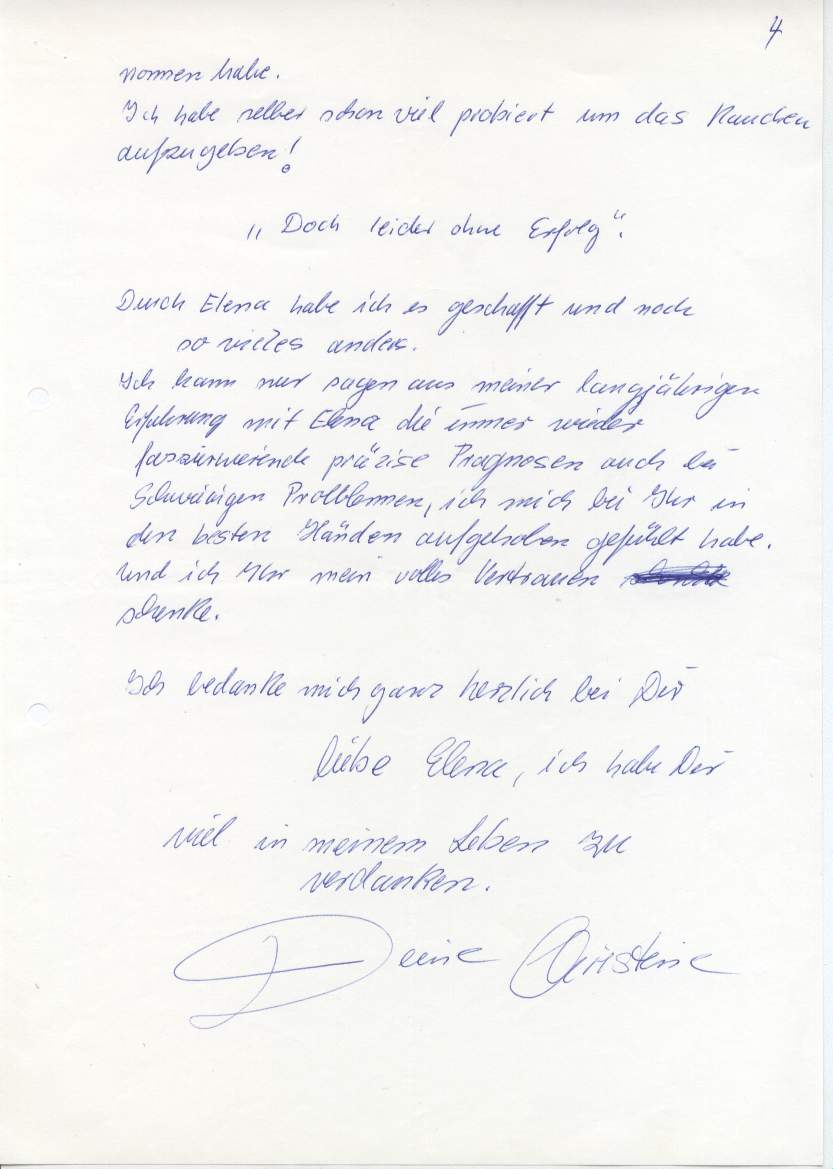 4
nommen habe.
Ich habe selber schon viel probiert um das Rauchen
aufzugeben!
„Doch leider ohne Erfolg“.
Durch Elena habe ich es geschafft und noch
so vieles anders.
Ich kann nur sagen aus meiner langjährigen
Erfahrung mit Elena die immer wieder
faszinierende präzise Prognosen auch bei
Schwierigen Problemen, ich mich bei Ihr in
den besten Händen aufgehoben gefühlt habe.
Und ich Ihr mein volles Vertrauen
schenke.
Ich bedanke mich ganz herzlich bei Dir
liebe Elena, ich habe Dir
viel in meinem Leben zu
verdanken.
Deine Christine